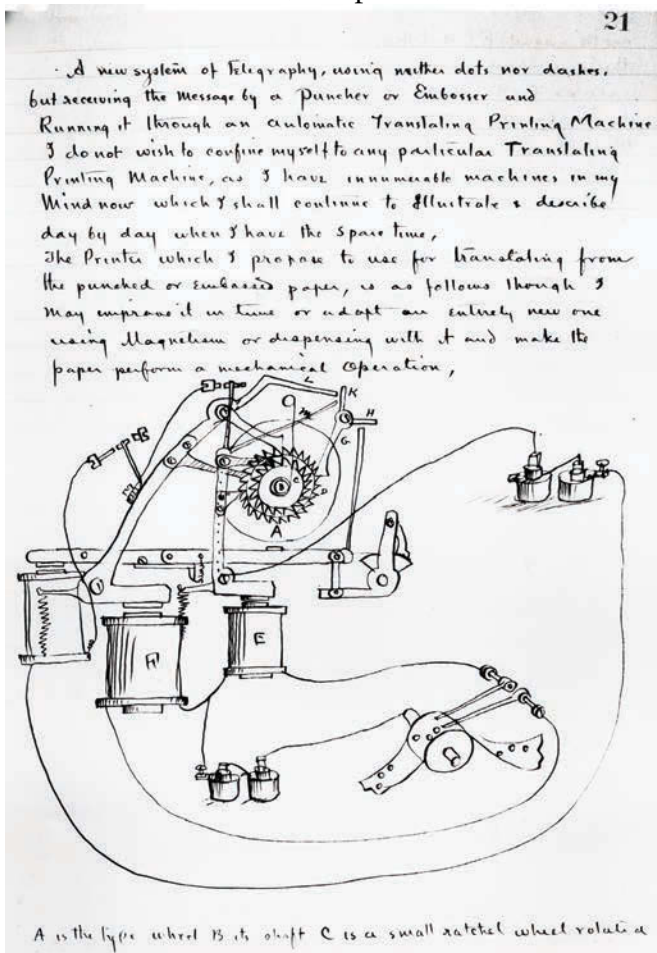 21
A new system of Telegraphy, using neither dots nor dashes.
but receiving the Message by a Puncher or Embosser and
Running it through an automatic Translating Printing Machine
I do not wish to confine myself to any particular Translating
Printing Machine, as I have innumerable machines in my
Mind now which I shall continue to Illustrate & describe
day by day when I have the spare time,
The Printer which I propose to use for translating from
the punched or embossed paper, is as follows though I
may improve it in time or adapt an entirely new one
using Magnetism or dispensing with it and make the
paper perform a mechanical operation,
L
K
H
G
A
E
A is the type wheel B its shaft C is a small ratchet wheel rotated